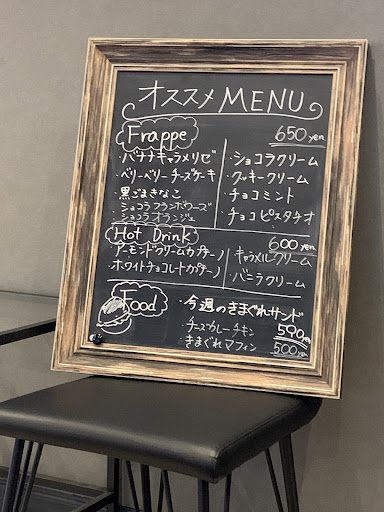 オススメ MENU
Frappe 650 yen
・バナナキャラメリゼ
・ベリーベリーチーズケーキ
・黒ごまきなこ
・ショコラフランボワーズ
・ショコラオランジェ
・ショコラクリーム
・クッキークリーム
・チョコミント
・チョコピスタチオ
Hot Drink 600 yen
・アーモンドクリームカプチーノ
・ホワイトチョコレートカプチーノ
・キャラメルクリーム
・バニラクリーム
Food
・今週のきまぐれサンド
・チーズカレーチキン 590 yen
きまぐれマフィン 500 yen